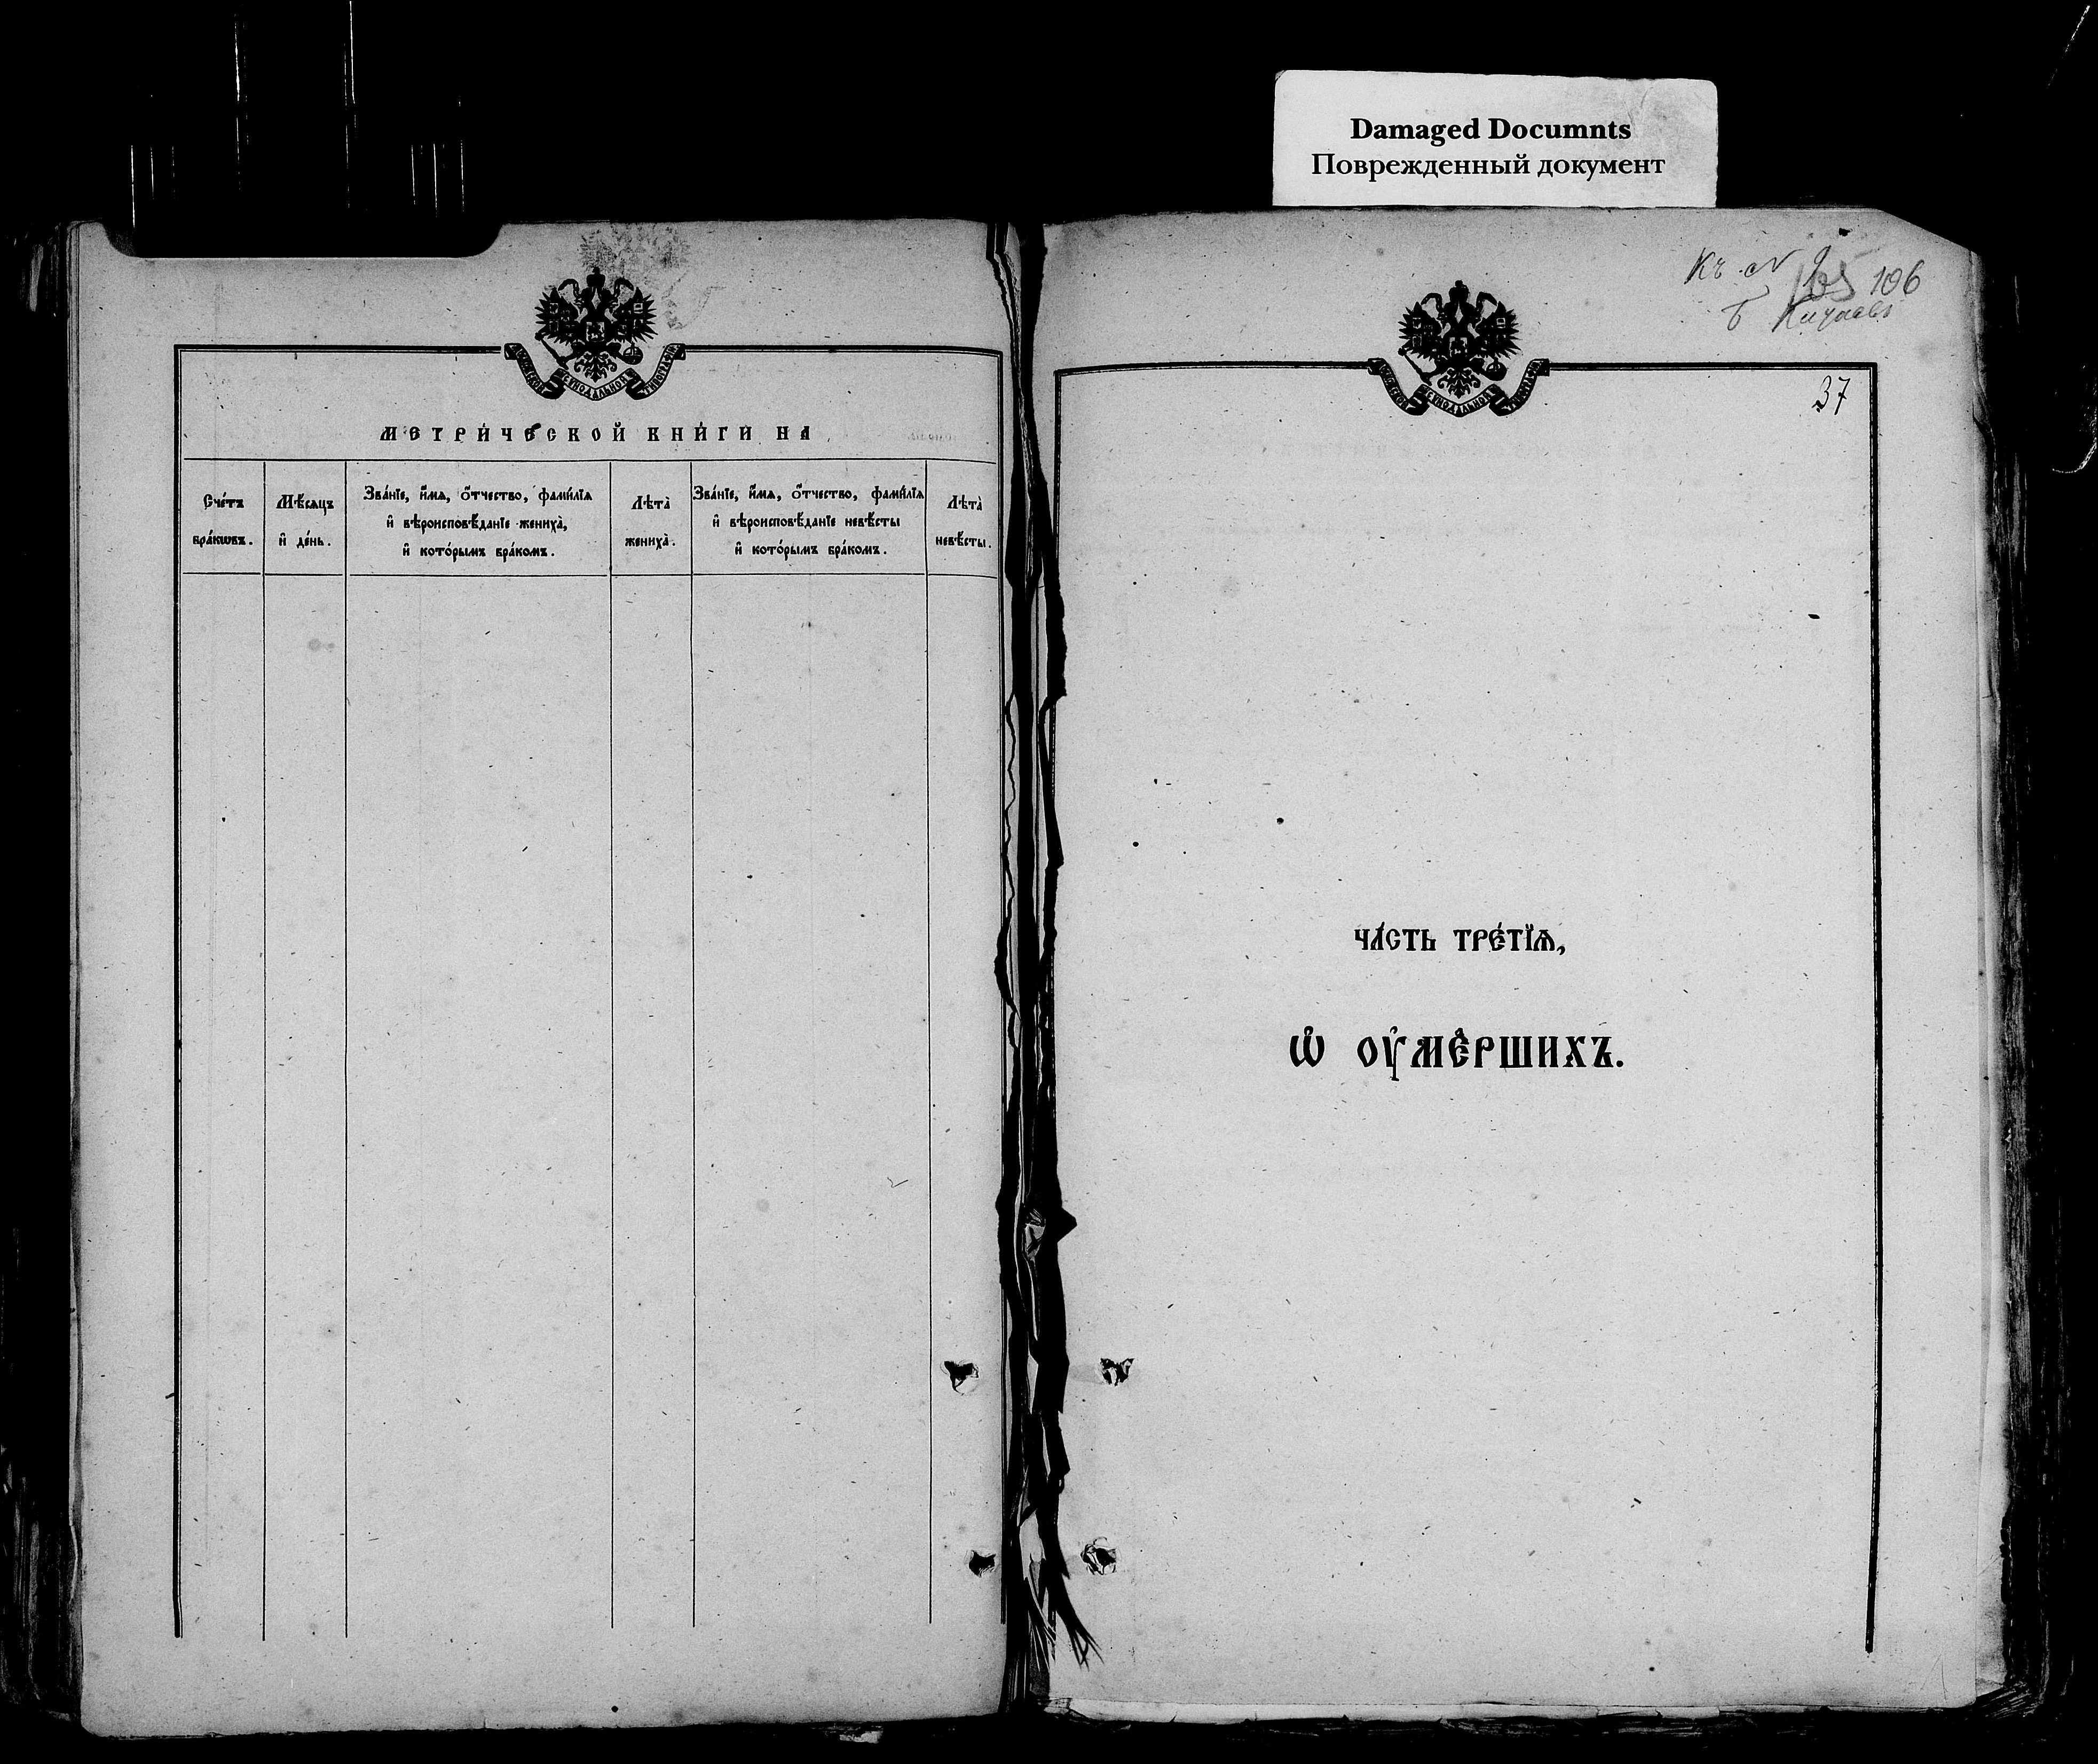 Damaged Documnts
Поврежденный документ
МЕТРИ́ЧЕСКОЙ КНИ́ГИ НА
Сче́тъ
бра́кѡвъ.
Мѣ́сѧцъ
и҆ де́нь.
Зва́нїе, и҆́мѧ, ѻ҆́тчество, фами́лїѧ
и҆ вѣроисповѣ́данїе жениха̀,
и҆ кото́рымъ бра́комъ.
Лѣта̀
жениха̀.
Зва́нїе, и҆́мѧ, ѻ҆́тчество, фами́лїѧ
и҆ вѣроисповѣ́данїе невѣ́сты
и҆ кото́рымъ бра́комъ.
Лѣта̀
невѣ́сты.
Къ № 9
105 106
37
ЧА́СТЬ ТРЕ́ТЇѦ,
Ѡ҆ ОУ҆МЕ́РШИХЪ.